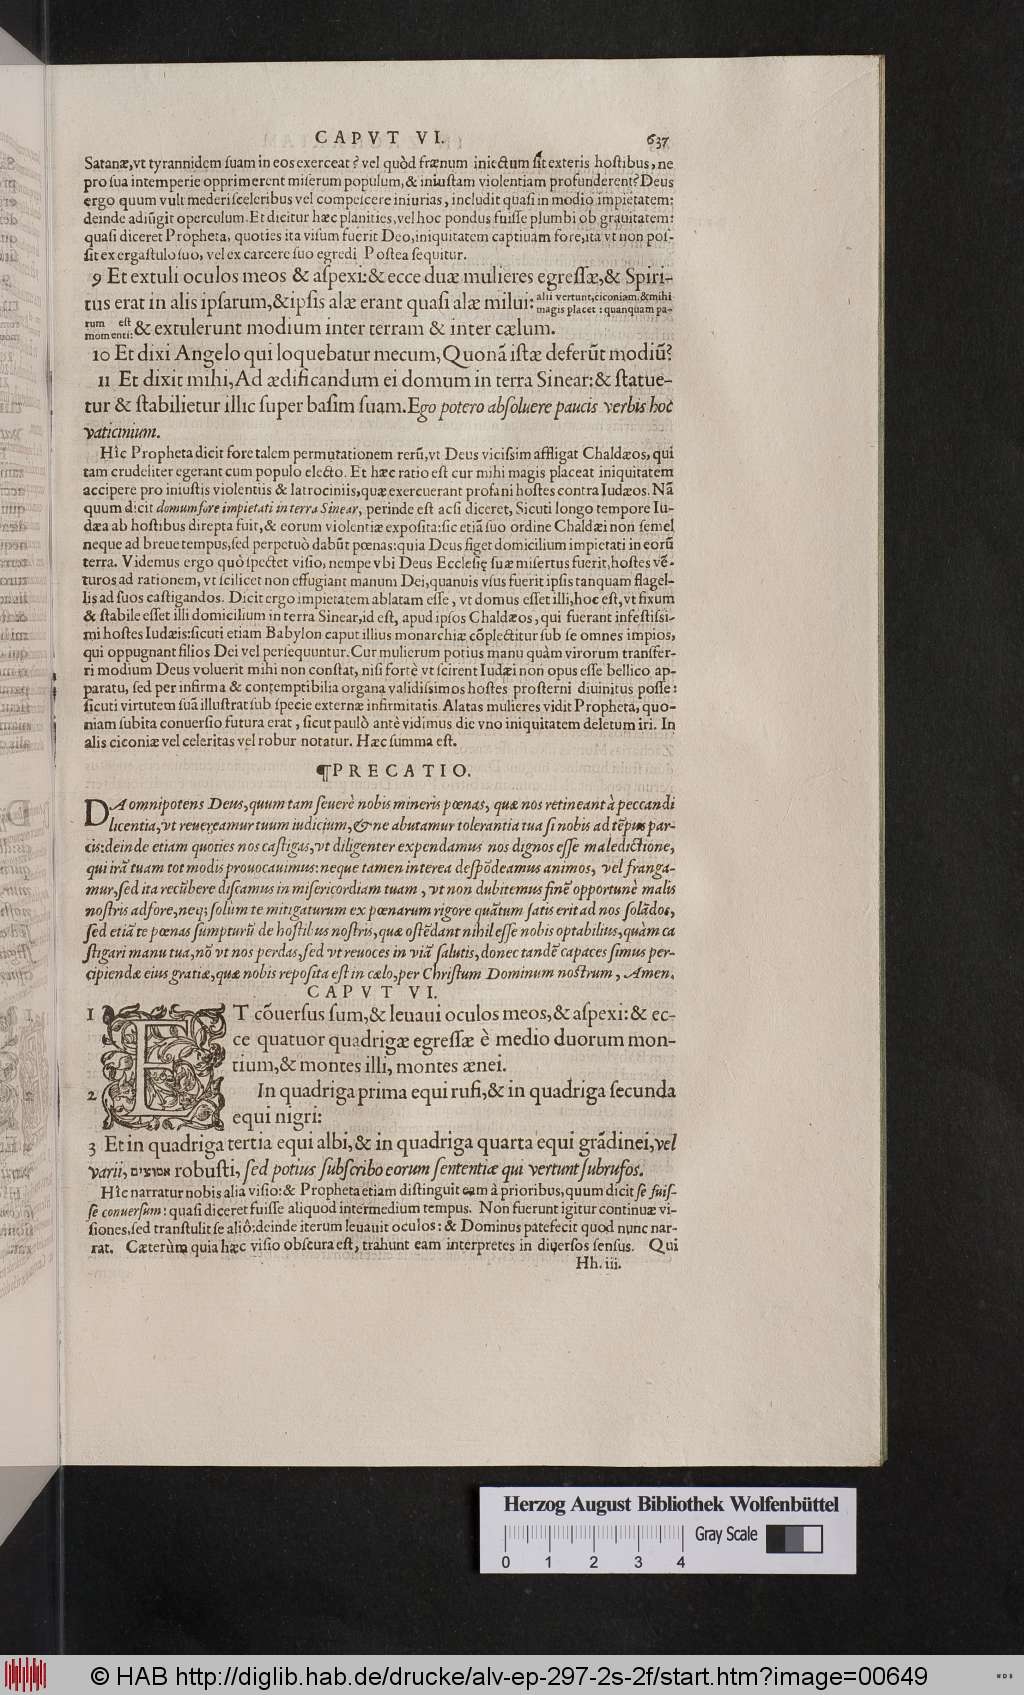 CAPVT VI. 637
Satanæ,vt tyrannidem ſuam in eos exerceat? vel quòd frænum iniectum ſit exteris hoſtibus, ne
pro ſua intemperie opprimerent miſerum populum,& iniuſtam violentiam profunderent? Deus
ergo quum vult mederi ſceleribus vel compeſcere iniurias, includit quaſi in modio impietatem:
deinde adiũgit operculum. Et dicitur hæc planities, vel hoc pondus fuiſſe plumbi ob grauitatem:
quaſi diceret Propheta, quoties ita viſum fuerit Deo,iniquitatem captiuam fore,ita vt non poſ-
ſit ex ergaſtulo ſuo, vel ex carcere ſuo egredi. Poſtea ſequitur.
9 Et extuli oculos meos & aſpexi:& ecce duæ mulieres egreſſæ,& Spiri-
tus erat in alis ipſarum,& ipſis alæ erant quaſi alæ milui: alii vertunt,ciconiam,& mihi
magis placet : quanquam pa-
rum est
momenti: & extulerunt modium inter terram & inter cælum.
10 Et dixi Angelo qui loquebatur mecum, Quonã iſtæ deferũt modiũ?
11 Et dixit mihi, Ad ædificandum ei domum in terra Sinear:& ſtatue-
tur & ſtabilietur illic ſuper baſim ſuam. Ego potero abſoluere paucis verbis hoc
vaticinium.
Hîc Propheta dicit fore talem permutationem rerũ,vt Deus viciſſim affligat Chaldæos, qui
tam crudeliter egerant cum populo electo. Et hæc ratio eſt cur mihi magis placeat iniquitatem
accipere pro iniuſtis violentiis & latrociniis,quæ exercuerant profani hoſtes contra Iudæos. Nã
quum dicit domum fore impietati in terra Sinear, perinde eſt acſi diceret, Sicuti longo tempore Iu-
dæa ab hoſtibus direpta fuit,& eorum violentiæ expoſita:ſic etiã ſuo ordine Chaldæi non ſemel
neque ad breue tempus,ſed perpetuò dabũt pœnas:quia Deus figet domicilium impietati in eorũ
terra. Videmus ergo quò ſpectet viſio, nempe vbi Deus Eccleſię ſuæ miſertus fuerit,hoſtes vẽ-
turos ad rationem, vt ſcilicet non effugiant manum Dei,quanuis vſus fuerit ipſis tanquam flagel-
lis ad ſuos caſtigandos. Dicit ergo impietatem ablatam eſſe, vt domus eſſet illi,hoc eſt,vt fixum
& ſtabile eſſet illi domicilium in terra Sinear,id eſt, apud ipſos Chaldæos, qui fuerant infeſtiſſi-
mi hoſtes Iudæis:ſicuti etiam Babylon caput illius monarchiæ cõplectitur ſub ſe omnes impios,
qui oppugnant filios Dei vel perſequuntur. Cur mulierum potius manu quàm virorum tranſfer-
ri modium Deus voluerit mihi non conſtat, niſi fortè vt ſcirent Iudæi non opus eſſe bellico ap-
paratu, ſed per infirma & contemptibilia organa validiſſimos hoſtes proſterni diuinitus poſſe:
ſicuti virtutem ſuã illuſtrat ſub ſpecie externæ infirmitatis. Alatas mulieres vidit Propheta, quo-
niam ſubita conuerſio futura erat, ſicut paulò antè vidimus die vno iniquitatem deletum iri. In
alis ciconiæ vel celeritas vel robur notatur. Hæc ſumma eſt.
¶PRECATIO.
DA omnipotens Deus, quum tam ſeuerè nobis mineris pœnas, quæ nos retineant à peccandi
licentia, vt reuereamur tuum iudicium, & ne abutamur tolerantia tua ſi nobis ad tẽpus par-
cis:deinde etiam quoties nos caſtigas,vt diligenter expendamus nos dignos eſſe maledictione,
qui irã tuam tot modis prouocauimus:neque tamen interea deſpõdeamus animos, vel franga-
mur,ſed ita recũbere diſcamus in miſericordiam tuam, vt non dubitemus finẽ opportunè malis
noſtris adfore,neq; ſolùm te mitigaturum ex pœnarum rigore quãtum ſatis erit ad nos ſolãdos,
ſed etiã te pœnas ſumpturũ de hoſtibus noſtris,quæ oſtẽdant nihil eſſe nobis optabilius,quàm ca
ſtigari manu tua,nõ vt nos perdas,ſed vt reuoces in viã ſalutis,donec tandẽ capaces ſimus per-
cipiendæ eius gratiæ,quæ nobis repoſita eſt in cælo,per Chriſtum Dominum noſtrum, Amen.
CAPVT VI.
1 ET cõuerſus ſum,& leuaui oculos meos,& aſpexi:& ec-
ce quatuor quadrigæ egreſſæ è medio duorum mon-
tium,& montes illi, montes ænei.
2 In quadriga prima equi rufi,& in quadriga ſecunda
equi nigri:
3 Et in quadriga tertia equi albi,& in quadriga quarta equi grãdinei,vel
varii, אמוצים robuſti, ſed potius ſubſcribo eorum ſententiæ qui vertunt ſubrufos.
Hîc narratur nobis alia viſio:& Propheta etiam diſtinguit eam à prioribus,quum dicit ſe fuiſ-
ſe conuerſum: quaſi diceret fuiſſe aliquod intermedium tempus. Non fuerunt igitur continuæ vi-
ſiones,ſed tranſtulit ſe aliò:deinde iterum leuauit oculos: & Dominus patefecit quod nunc nar-
rat. Cæterùm quia hæc viſio obſcura eſt, trahunt eam interpretes in diuerſos ſenſus. Qui
Hh. iii.
Herzog August Bibliothek Wolfenbüttel
Gray Scale
0 1 2 3 4
© HAB http://diglib.hab.de/drucke/alv-ep-297-2s-2f/start.htm?image=00649